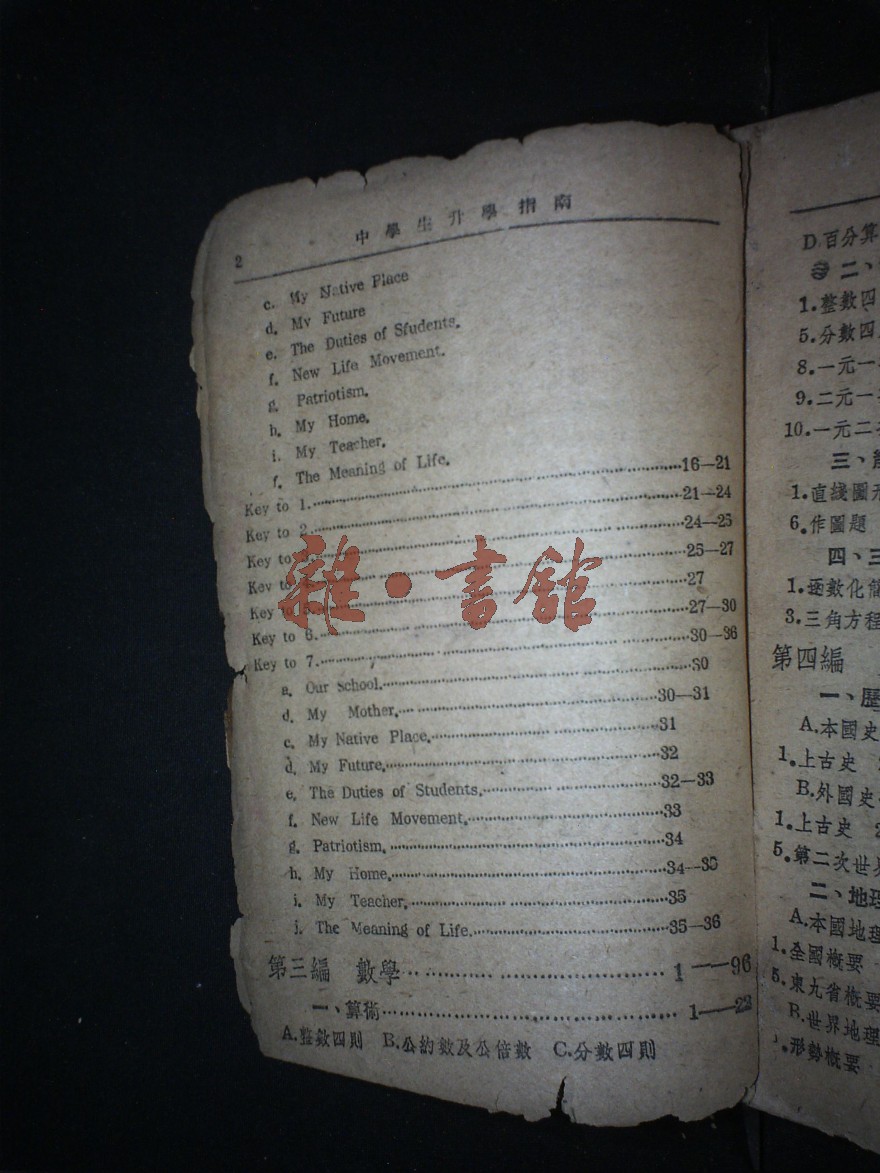 2
中學生升學指南
c. My Native Place
d. My Future
e. The Duties of Students.
f. New Life Movement.
g. Patriotism.
h. My Home.
i. My Teacher.
f. The Meaning of Life.
Key to 1. 16—21
Key to 2 21—24
Key to 3. 24—25
Key to 25—27
Key to 5. 27
Key to 6. 27—30
Key to 7. 30—36
a. Our School. 30
d. My Mother. 30—31
c. My Native Place. 31
d. My Future. 32
e. The Duties of Students. 32—33
f. New Life Movement. 33
g. Patriotism. 34
h. My Home. 34—35
i. My Teacher. 35
j. The Meaning of Life. 35—36
第三編 數學 1—96
一、算術 1—22
A.整數四則 B.公約數及公倍數 C.分數四則
D.百分算
二、
1.整數四
5.分數四
8.一元一
9.二元一
10.一元二
三、
1.直綫圖形
6.作圖題
四、三
1.逐數化簡
3.三角方程
第四編
一、歷
A.本國史
1.上古史
B.外國史
1.上古史 2
5.第二次世界
二、地理
A.本國地理
1.全國概要
5.東九省概要
B.世界地理
1.形勢概要
雜·書館